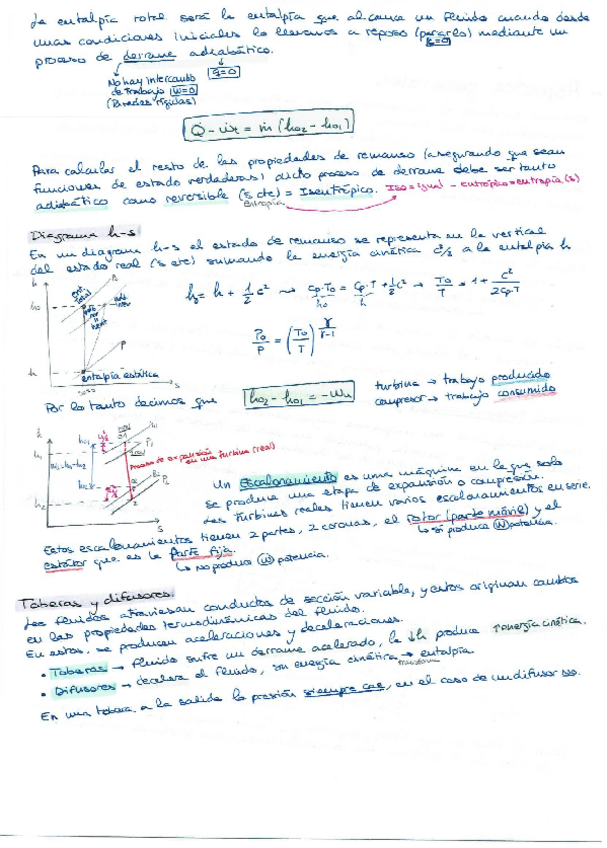 La entalpía total será la entalpía que alcanza un fluido cuando desde
unas condiciones iniciales lo llevamos a reposo (pararlo) mediante un
c=0
proceso de derrame adiabático.
No hay intercambio
de trabajo w=0
(Paredes rígidas)
q=0
Q - ẇt = ṁ (ho2 - ho1)
Para calcular el resto de las propiedades de remanso (asegurando que sean
funciones de estado verdaderas) dicho proceso de derrame debe ser tanto
adiabático como reversible (s cte) = Isentrópico.
entropía
Iso = igual - entrópico = entropía (s)
Diagrama h-s
En un diagrama h-s el estado de remanso se representa en la vertical
del estado real (s cte) sumando la energía cinética c²/2 a la entalpía h
h
ho
h
P
s
entalpía estática
h0 = h + 1/2 c² → cp·T0 = cp·T + 1/2 c² → T0/T = 1 + c²/2cp·T
h0
h
P0/P = (T0/T)^γ/γ-1
Por lo tanto decimos que
ho2 - ho1 = -wu
turbina → trabajo producido
compresor → trabajo consumido
h
ho1
h1
h2
P1
P2
s
Proceso de expansión
en una turbina (real)
Un Escalonamiento es una máquina en la que solo
se produce una etapa de expansión o compresión.
Las turbinas reales tienen varios escalonamientos en serie.
Estos escalonamientos tienen 2 partes, 2 coronas, el rotor (parte móvil) y el
↳ si produce (W) potencia.
estátor que es la parte fija.
↳ no produce (W) potencia.
Toberas y difusores.
Los fluidos atraviesan conductos de sección variable, y estos originan cambios
en las propiedades termodinámicas del fluido.
En estos, se producen aceleraciones y deceleraciones.
• Toberas → fluido sufre un derrame acelerado, la ↓h produce ↑energía cinética.
• Difusores → decelera el fluido, su energía cinética → entalpía.
transforma
En una tobera a la salida la presión siempre cae, en el caso de un difusor